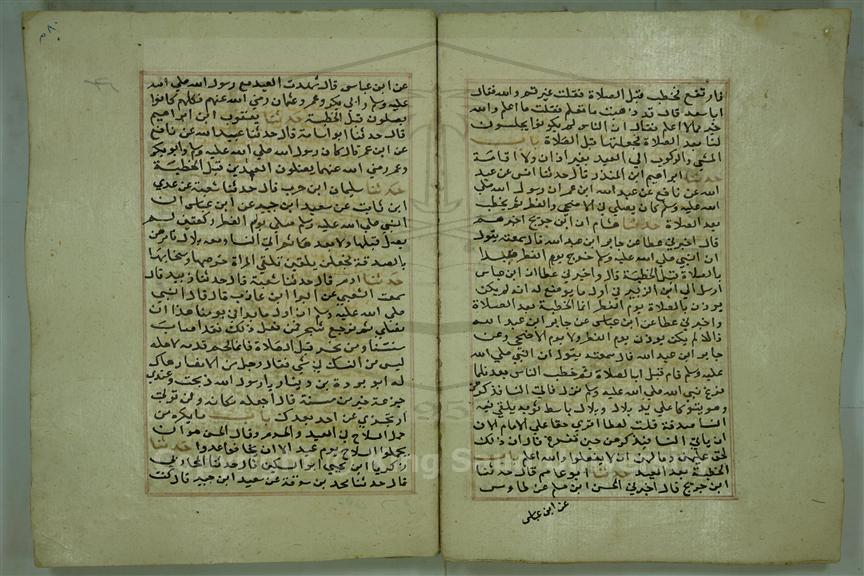 فارتفع فخطب قبل الصلاة فقلت غيرتم والله فقال
ابا سعيد قال قد ذهبت ما تعلم فقلت ما اعلم والله
خير مما لا اعلم فقال ان الناس لم يكونوا يجلسون
لنا بعد الصلاة فجعلتها قبل الصلاة باب
المشي والركوب الى العيد بغير اذان ولا اقامة
حدثنا ابراهيم ابن المنذر قال حدثنا انس عن عبيد
الله عن نافع عن عبد الله ابن عمر ان رسول الله صلى
الله عليه وسلم كان يصلي في الاضحى والفطر ثم يخطب
بعد الصلاة حدثنا هشام ان ابن جريج اخبرهم
قال اخبرني عطا عن جابر ابن عبد الله قال سمعته يقول
ان النبي صلى الله عليه وسلم خرج يوم الفطر فبدا
بالصلاة قبل الخطبة قال واخبرني عطا ان ابن عباس
ارسل الى ابن الزبير في اول ما بويع له انه لم يكن
يوذن بالصلاة يوم الفطر انما الخطبة بعد الصلاة
واخبرني عطا عن ابن عباس عن جابر ابن عبد الله
قالا لم يكن يوذن يوم الفطر ولا يوم الاضحى وعن
جابر ابن عبد الله قال سمعته يقول ان النبي صلى الله
عليه وسلم قام فبدا بالصلاة ثم خطب الناس بعد فلما
فرغ نبي الله صلى الله عليه وسلم نزل فاتى النسا فذكرهن
وهو يتوكا على يد بلال وبلال باسط ثوبه يلقي فيه
النسا صدقة قلت لعطا اترى حقا على الامام الان
ان ياتي النسا فيذكرهن حين يفرغ قال ان ذلك
لحق عليهم وما لهم ان لا يفعلوا والله اعلم باب
الخطبة بعد العيد حدثنا ابو عاصم قال حدثنا
ابن جريج قال اخبرني الحسن ابن مسلم عن طاوس
عن ابن عباس
عن ابن عباس قال شهدت العيد مع رسول الله صلى الله
عليه وسلم وابي بكر وعمر وعثمان رضي الله عنهم فكلهم كانوا
يصلون قبل الخطبة حدثنا يعقوب ابن ابراهيم
قال حدثنا ابو اسامة قال حدثنا عبيد الله عن نافع
عن ابن عمر قال كان رسول الله صلى الله عليه وسلم وابو بكر
وعمر رضي الله عنهما يصلون العيدين قبل الخطبة
حدثنا سليمان ابن حرب قال حدثنا شعبة عن عدي
ابن ثابت عن سعيد ابن جبير عن ابن عباس ان
النبي صلى الله عليه وسلم صلى يوم الفطر ركعتين لم
يصل قبلها ولا بعدها ثم اتى النسا ومعه بلال فامرهن
بالصدقة فجعلن يلقين تلقي المراة خرصها وسخابها
حدثنا ادم قال حدثنا شعبة قال حدثنا زبيد قال
سمعت الشعبي عن البرا ابن عازب قال قال النبي
صلى الله عليه وسلم ان اول ما نبدا في يومنا هذا ان
نصلي ثم نرجع فننحر فمن فعل ذلك فقد اصاب
سنتنا ومن نحر قبل الصلاة فانما لحم قدمه لاهله
ليس من النسك في شي فقال رجل من الانصار يقال
له ابو بردة بن دينار يا رسول الله ذبحت وعندي
جذعة خير من مسنة قال اجعله مكانه ولن توفي
او تجزي عن احد بعدك باب ما يكره من
حمل السلاح في العيد والحرم وقال الحسن نهوا ان
يحملوا السلاح يوم عيد الا ان يخافوا عدوا حدثنا
زكريا ابن يحيى ابو السكين قال حدثنا المحاربي
قال حدثنا محمد بن سوقة عن سعيد ابن جبير قال كنت